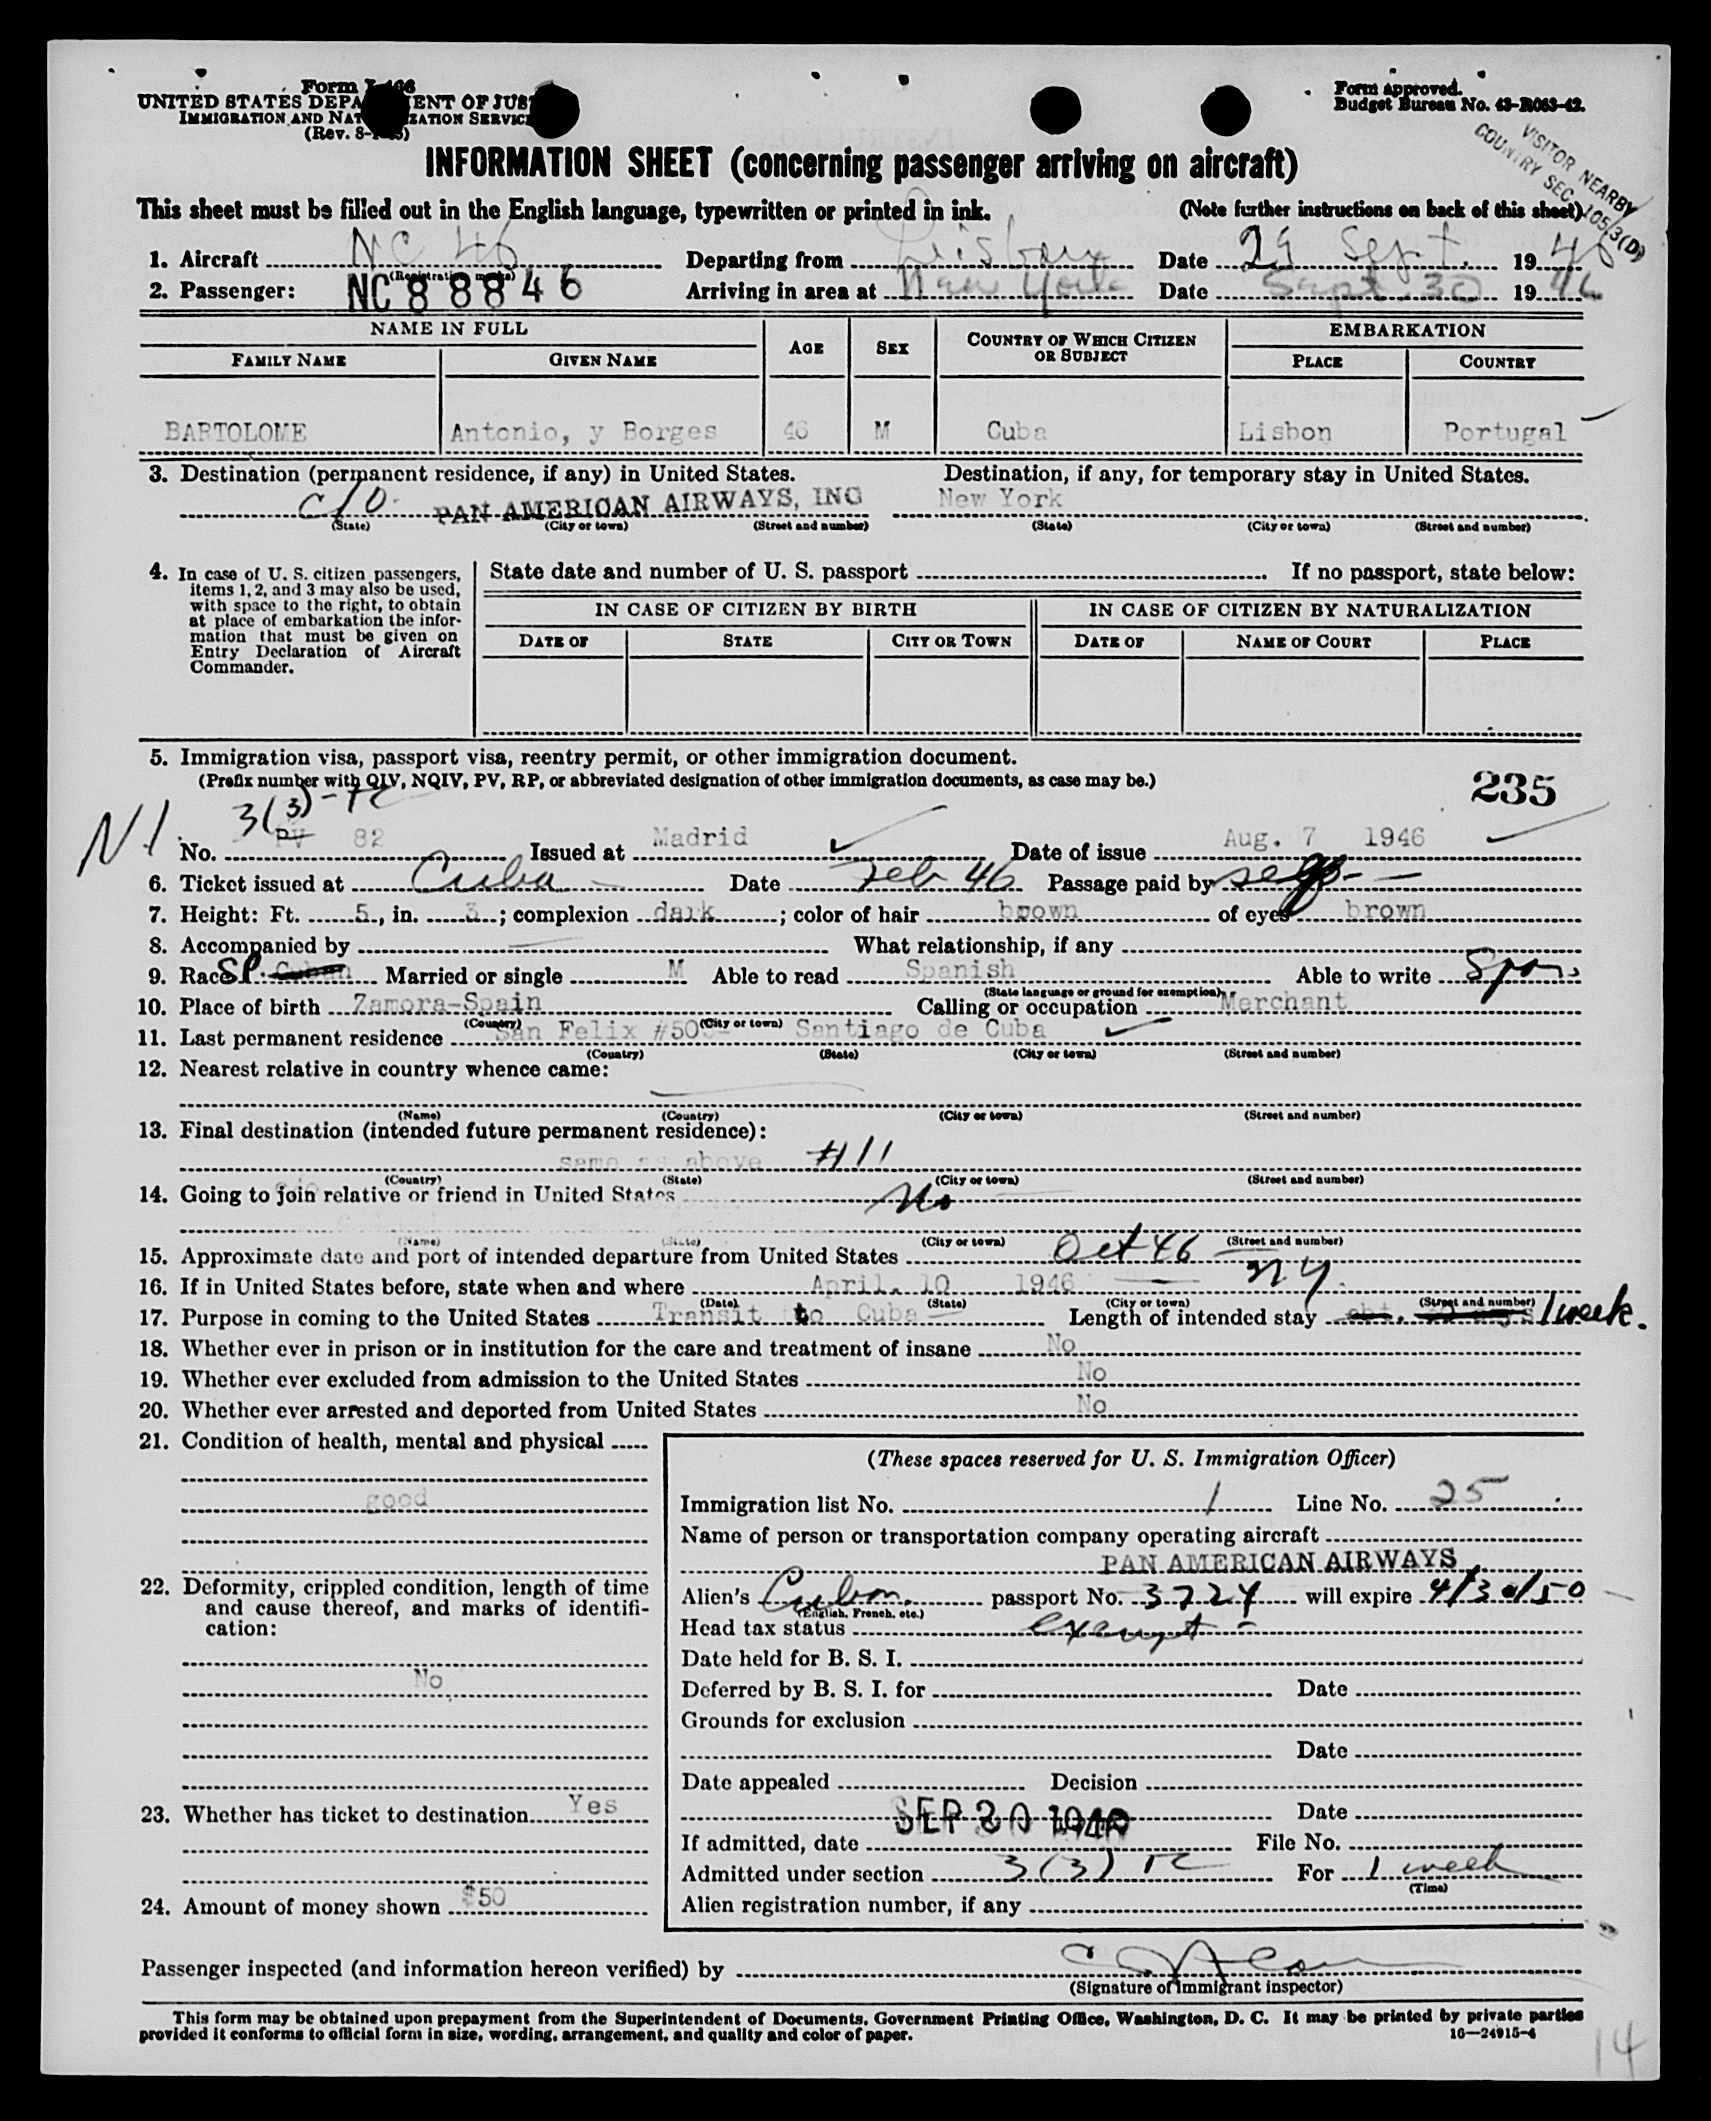 Form I-466
UNITED STATES DEPA ENT OF JUS
IMMIGRATION AND NAT ZATION SERVIC
(Rev. 8-
Form approved.
Budget Bureau No. 43-R063-42.
VISITOR NEARBY
COUNTRY SEC. 105.3(D)
INFORMATION SHEET (concerning passenger arriving on aircraft)
This sheet must be filled out in the English language, typewritten or printed in ink. (Note further instructions on back of this sheet)
1. Aircraft NC 46 (Registration marks) Departing from Lisbon Date 29 Sept. 1946
2. Passenger: NC 88846 Arriving in area at New York Date Sept 30 1946
NAME IN FULL EMBARKATION
FAMILY NAME GIVEN NAME AGE SEX COUNTRY OF WHICH CITIZEN OR SUBJECT PLACE COUNTRY
BARTOLOME Antonio, y Borges 46 M Cuba Lisbon Portugal
3. Destination (permanent residence, if any) in United States. Destination, if any, for temporary stay in United States.
C/O PAN AMERICAN AIRWAYS, INC New York
(State) (City or town) (Street and number) (State) (City or town) (Street and number)
4. In case of U. S. citizen passengers, items 1, 2, and 3 may also be used, with space to the right, to obtain at place of embarkation the information that must be given on Entry Declaration of Aircraft Commander.
State date and number of U. S. passport If no passport, state below:
IN CASE OF CITIZEN BY BIRTH IN CASE OF CITIZEN BY NATURALIZATION
DATE OF STATE CITY OR TOWN DATE OF NAME OF COURT PLACE
5. Immigration visa, passport visa, reentry permit, or other immigration document.
(Prefix number with QIV, NQIV, PV, RP, or abbreviated designation of other immigration documents, as case may be.)
235
NI 3(3)-TC
No. PV 82 Issued at Madrid Date of issue Aug. 7 1946
6. Ticket issued at Cuba Date Feb 46 Passage paid by self
7. Height: Ft. 5, in. 3; complexion dark; color of hair brown of eyes brown
8. Accompanied by — What relationship, if any
9. Race Sp. Cuban Married or single M Able to read Spanish Able to write Span
(State language or ground for exemption)
10. Place of birth Zamora-Spain Calling or occupation Merchant
(Country) (City or town)
11. Last permanent residence San Felix #50 Santiago de Cuba
(Country) (State) (City or town) (Street and number)
12. Nearest relative in country whence came:
(Name) (Country) (City or town) (Street and number)
13. Final destination (intended future permanent residence):
same as above #11
(Country) (State) (City or town) (Street and number)
14. Going to join relative or friend in United States No
(Name) (State) (City or town) (Street and number)
15. Approximate date and port of intended departure from United States Oct 46
16. If in United States before, state when and where April. 10 1946 NY.
(Date) (State) (City or town) (Street and number)
17. Purpose in coming to the United States Transit to Cuba Length of intended stay 1 week.
18. Whether ever in prison or in institution for the care and treatment of insane No
19. Whether ever excluded from admission to the United States No
20. Whether ever arrested and deported from United States No
21. Condition of health, mental and physical
good
22. Deformity, crippled condition, length of time and cause thereof, and marks of identification:
No
23. Whether has ticket to destination Yes
24. Amount of money shown $50
(These spaces reserved for U. S. Immigration Officer)
Immigration list No. 1 Line No. 25
Name of person or transportation company operating aircraft
PAN AMERICAN AIRWAYS
Alien's Cuban passport No. 3724 will expire 4/30/50
(English, French, etc.)
Head tax status exempt
Date held for B. S. I.
Deferred by B. S. I. for Date
Grounds for exclusion
Date
Date appealed Decision
Date
If admitted, date SEP 30 1946 File No.
Admitted under section 3(3) TC For 1 week
(Time)
Alien registration number, if any
Passenger inspected (and information hereon verified) by
(Signature of immigrant inspector)
This form may be obtained upon prepayment from the Superintendent of Documents, Government Printing Office, Washington, D. C. It may be printed by private parties
provided it conforms to official form in size, wording, arrangement, and quality and color of paper. 16—24915-4
14